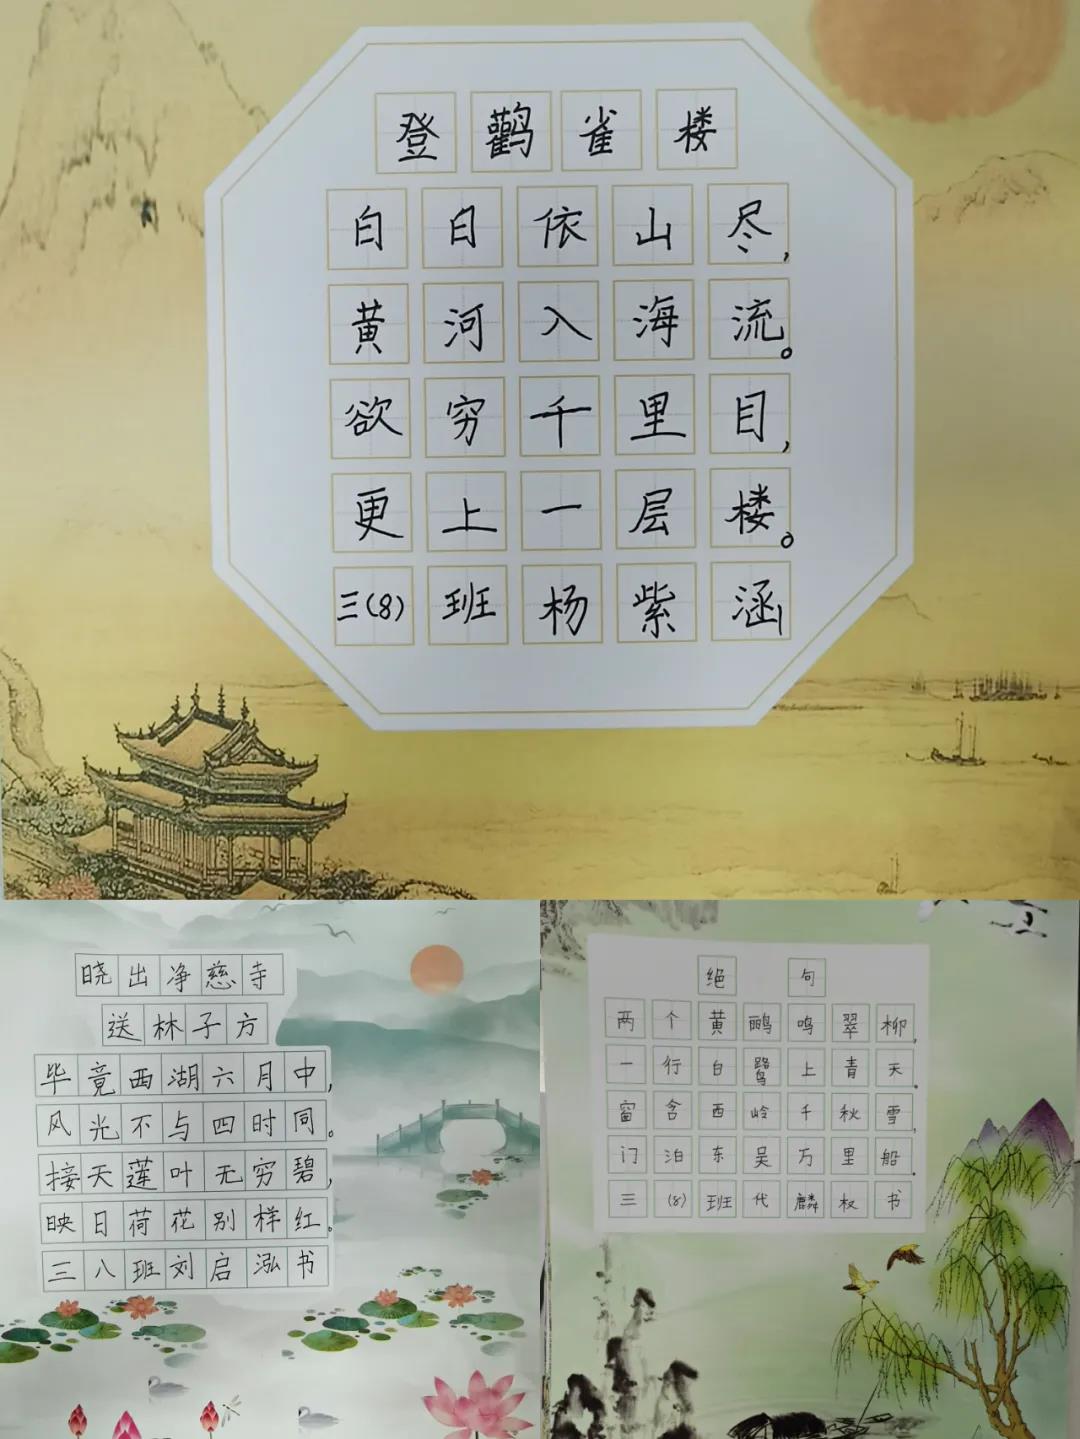 登鹳雀楼
白日依山尽，
黄河入海流。
欲穷千里目，
更上一层楼。
三(8)班杨紫涵
晓出净慈寺
送林子方
毕竟西湖六月中，
风光不与四时同。
接天莲叶无穷碧，
映日荷花别样红。
三八班刘启泓书
绝句
两个黄鹂鸣翠柳，
一行白鹭上青天。
窗含西岭千秋雪，
门泊东吴万里船。
三(8)班代麟权书